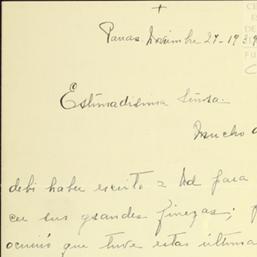 +
Noviembre 27-1939
Estimadisima Señora:
Mucho a
debi haber escrito a Ud para
cer sus grandes finezas;
ocurrió que tuve estas última